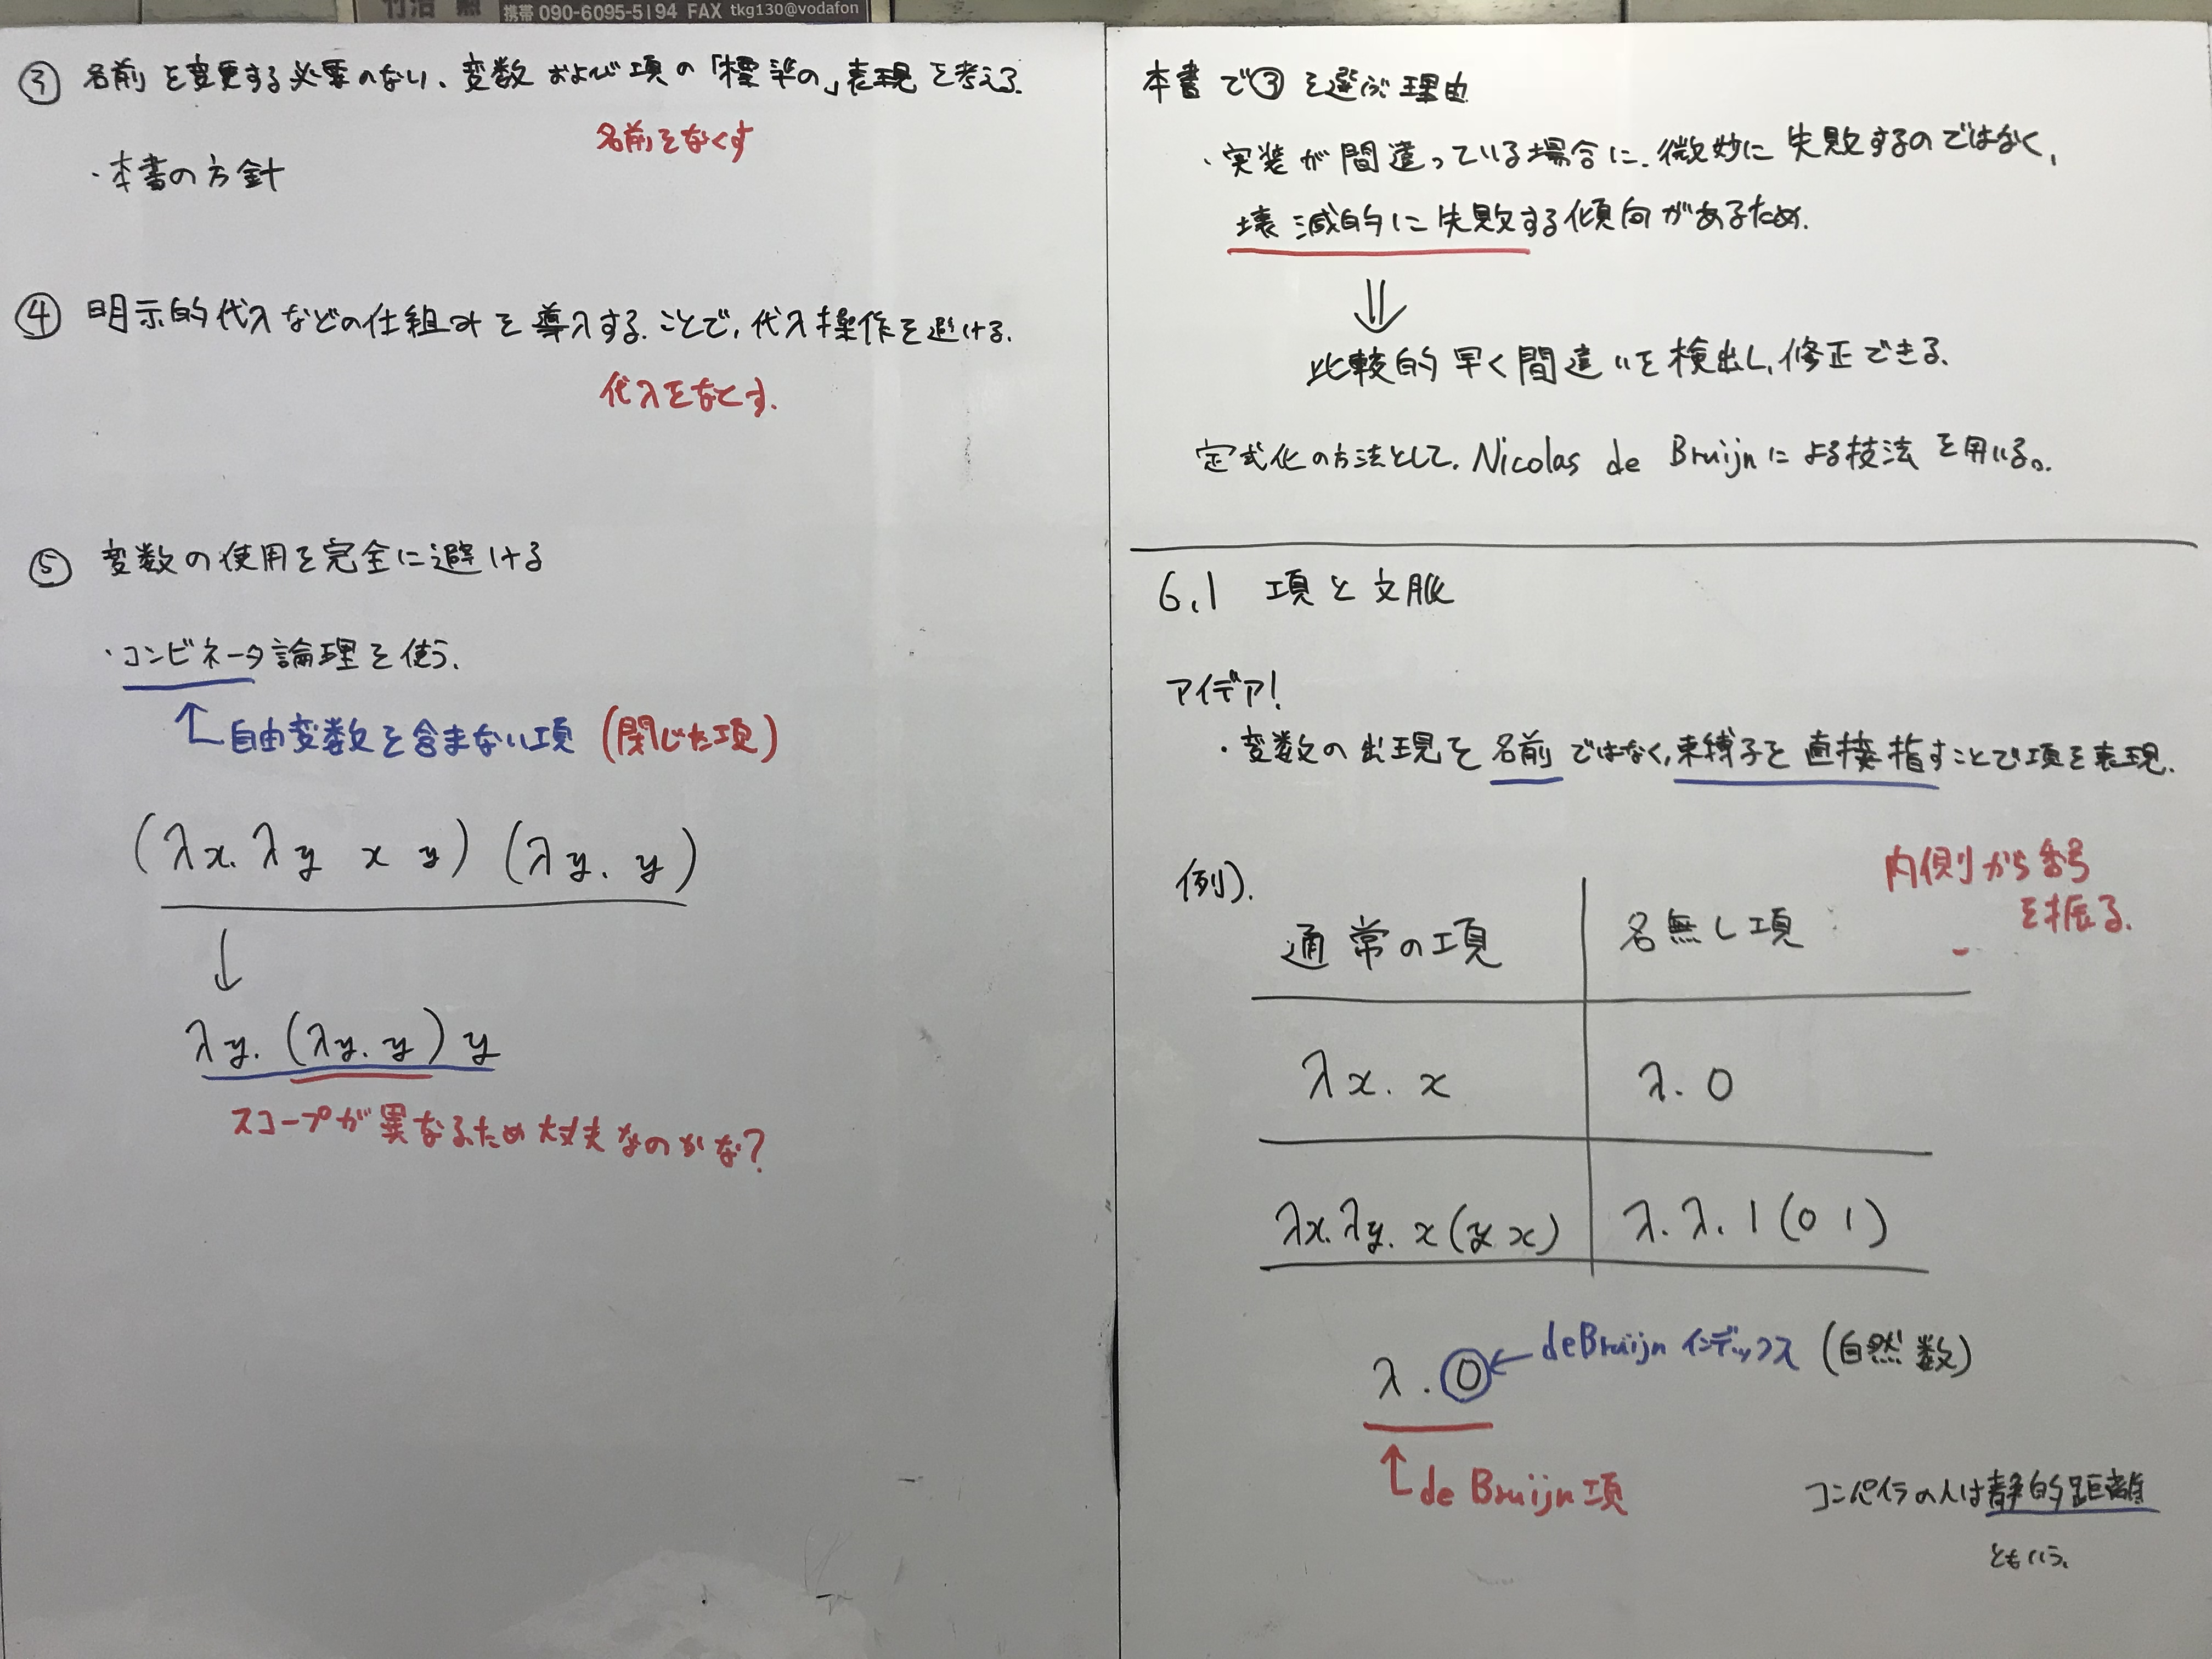 携帯 090-6095-5194 FAX tkg130@vodafon
③ 名前を変更する必要のない、変数および項の「標準の」表現を考える.
名前をなくす
・本書の方針
④ 明示的代入などの仕組みを導入することで,代入操作を避ける.
代入をなくす.
⑤ 変数の使用を完全に避ける
・コンビネータ論理を使う.
自由変数を含まない項 (閉じた項)
(λx. λy x y) (λy. y)
↓
λy. (λy. y) y
スコープが異なるため大丈夫なのかな?
本書で③を選ぶ理由
・実装が間違っている場合に.微妙に失敗するのではなく,
壊滅的に失敗する傾向があるため.
⇓
比較的早く間違いを検出し,修正できる.
定式化の方法として. Nicolas de Bruijnによる技法を用いる。.
6.1 項と文脈
アイデア!
・変数の出現を名前ではなく,束縛子を直接指すことで項を表現.
内側から番号
を振る.
例).
通常の項 名無し項
λx. x λ. 0
λx. λy. x (y x) λ. λ. 1 (0 1)
λ. 0 ← deBruijn インデックス (自然数)
de Bruijn 項
コンパイラの人は静的距離
ともいう.